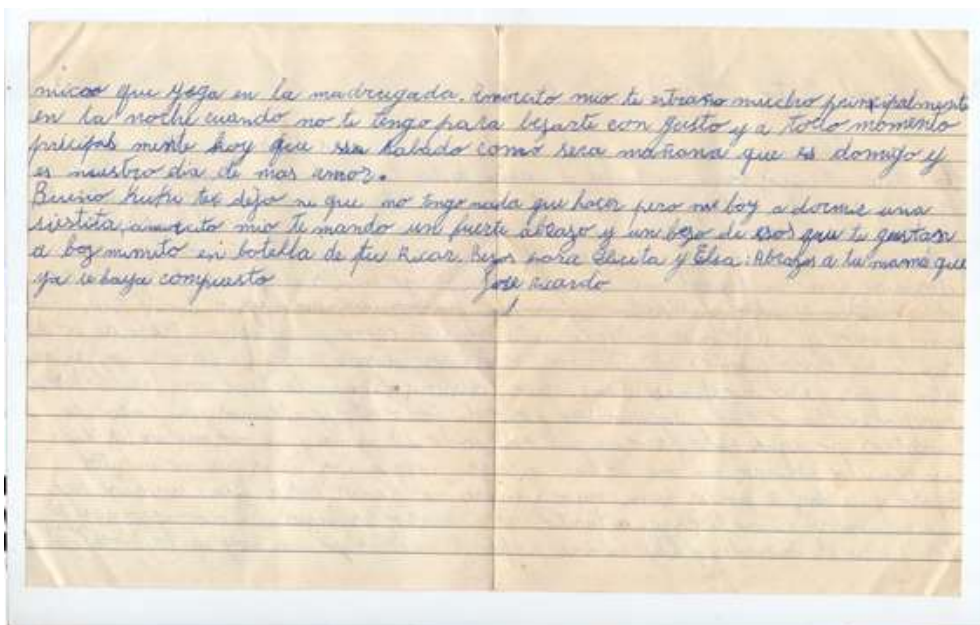 micos que llega en la madrugada. Amorcito mio te extraño mucho principalmente
en la noche cuando no te tengo para besarte con gusto y a todo momento
pricipal mente hoy que sea sabado como sera mañana que es domigo y
es nuestro dia de mas amor.
Bueno kuku te dejo no que no tengo nada que hacer pero me boy a dormir una
siestita, amorcito mio te mando un fuerte abrazo y un beso de esos que te gustan
a boz mimito en botella de tu Ricar. Besos para Elicita y Elsa: Abrazos a tu mama que
ya se baya compuesto
Jose Ricardo